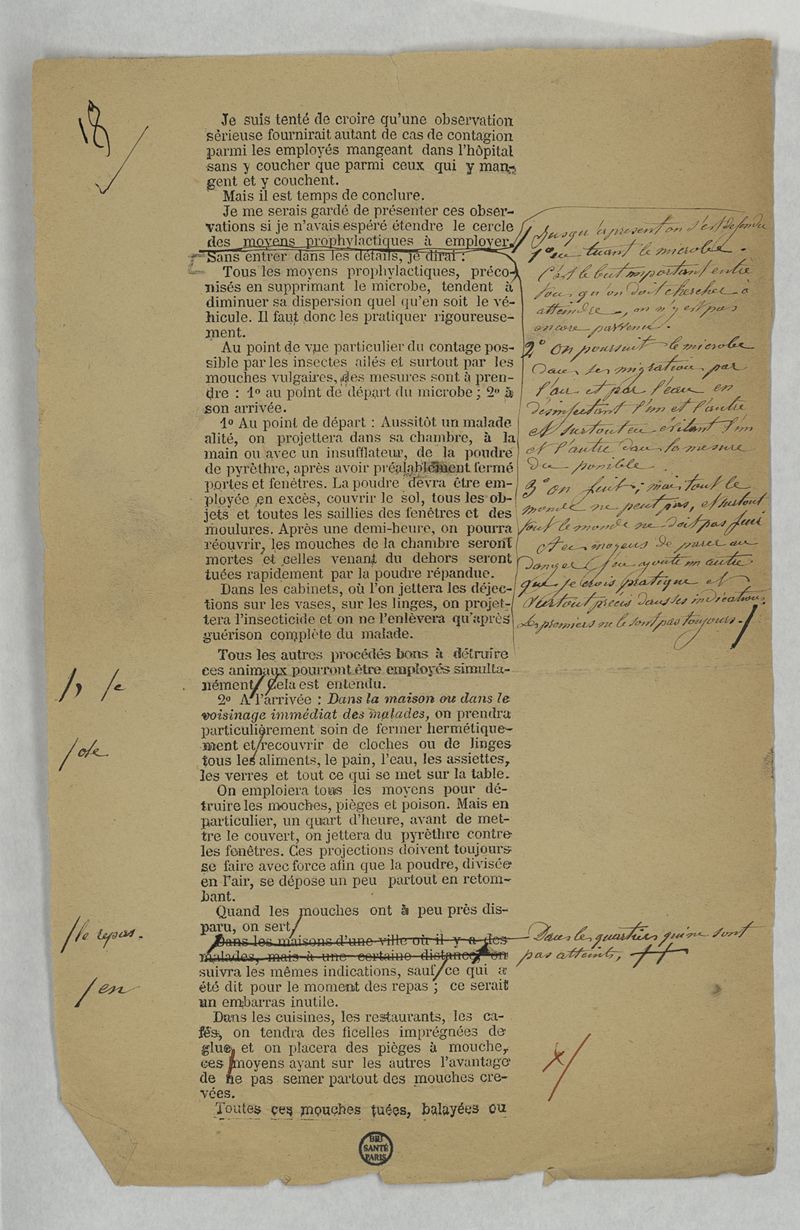 18
Je suis tenté de croire qu'une observation
sérieuse fournirait autant de cas de contagion
parmi les employés mangeant dans l'hôpital
sans y coucher que parmi ceux qui y man-
gent et y couchent.
Mais il est temps de conclure.
Je me serais gardé de présenter ces obser-
vations si je n'avais espéré étendre le cercle
des moyens prophylactiques à employer.
Sans entrer dans les détails, je dirai :
Tous les moyens prophylactiques, préco-
nisés en supprimant le microbe, tendent à
diminuer sa dispersion quel qu'en soit le vé-
hicule. Il faut donc les pratiquer rigoureuse-
ment.
Au point de vue particulier du contage pos-
sible par les insectes ailés et surtout par les
mouches vulgaires, des mesures sont à pren-
dre : 1º au point de départ du microbe ; 2º à
son arrivée.
1º Au point de départ : Aussitôt un malade
alité, on projettera dans sa chambre, à la
main ou avec un insufflateur, de la poudre
de pyrèthre, après avoir préalablement fermé
portes et fenêtres. La poudre devra être em-
ployée en excès, couvrir le sol, tous les ob-
jets et toutes les saillies des fenêtres et des
moulures. Après une demi-heure, on pourra
réouvrir, les mouches de la chambre seront
mortes et celles venant du dehors seront
tuées rapidement par la poudre répandue.
Dans les cabinets, où l'on jettera les déjec-
tions sur les vases, sur les linges, on projet-
tera l'insecticide et on ne l'enlèvera qu'après
guérison complète du malade.
Tous les autres procédés bons à détruire
ces animaux pourront être employés simulta-
nément. Cela est entendu.
2º A l'arrivée : Dans la maison ou dans le
voisinage immédiat des malades, on prendra
particulièrement soin de fermer hermétique-
ment et recouvrir de cloches ou de linges
tous les aliments, le pain, l'eau, les assiettes,
les verres et tout ce qui se met sur la table.
On emploiera tous les moyens pour dé-
truire les mouches, pièges et poison. Mais en
particulier, un quart d'heure, avant de met-
tre le couvert, on jettera du pyrèthre contre
les fenêtres. Ces projections doivent toujours
se faire avec force afin que la poudre, divisée
en l'air, se dépose un peu partout en retom-
bant.
Quand les mouches ont à peu près dis-
paru, on sert
Dans les maisons d'une ville où il y a des
malades, mais à une certaine distance, on
suivra les mêmes indications, sauf ce qui a
été dit pour le moment des repas ; ce serait
un embarras inutile.
Dans les cuisines, les restaurants, les ca-
fés, on tendra des ficelles imprégnées de
glue, et on placera des pièges à mouche,
ces moyens ayant sur les autres l'avantage
de ne pas semer partout des mouches cre-
vées.
Toutes ces mouches tuées, balayées ou
Jusqu'à présent on s'est défendu
1º en tuant le microbe.
C'est le but important entre
tous qu'on doit chercher à
atteindre, on n'y est pas
encore parvenu.
2º on poursuit le microbe
dans ses migrations par
l'air et par l'eau en
désinfectant l'un et l'autre
et surtout en évitant l'un
et l'autre dans la mesure
du possible.
3º on fuit ; mais tout le
monde ne peut pas, et surtout
tout le monde ne doit pas fuir
moyens de parer au
danger j'en ajoute un autre
que je crois pratique et
surtout précis dans ses indications.
Les premiers ne le sont pas toujours.
/, /c
/de
/le repas.
/en
Dans les quartiers qui ne sont
pas atteints,
BIU
SANTÉ
PARIS